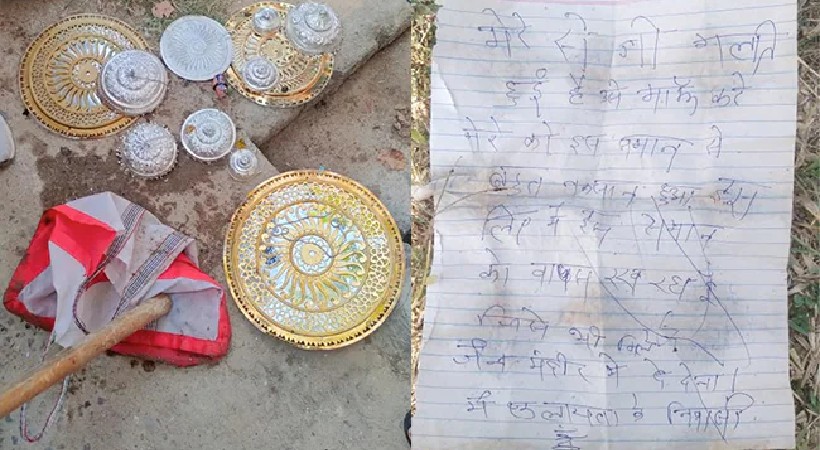 मेरे से जो गलती
हुई है मुझे माफ करे
मेरे को इस समान से
बहुत नुकसान हुआ इस
लिए मे इस समान
को वापस रख रहा हूँ
जिसे भी मिले
जैन मंदीर मे दे देना।
के निवासी